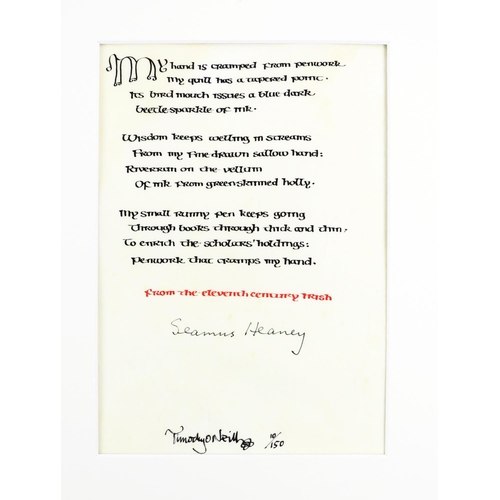 My hand is cramped from penwork
My quill has a tapered point.
Its bird mouth issues a blue dark
beetle sparkle of ink.
Wisdom keeps welling in streams
From my fine drawn sallow hand:
Riverrun on the vellum
Of ink from green skinned holly.
My small runny pen keeps going
Through books through thick and thin:
To enrich the scholars' holdings:
Penwork that cramps my hand.
From the eleventh century Irish
Seamus Heaney
Timothy O'Neill 10/150